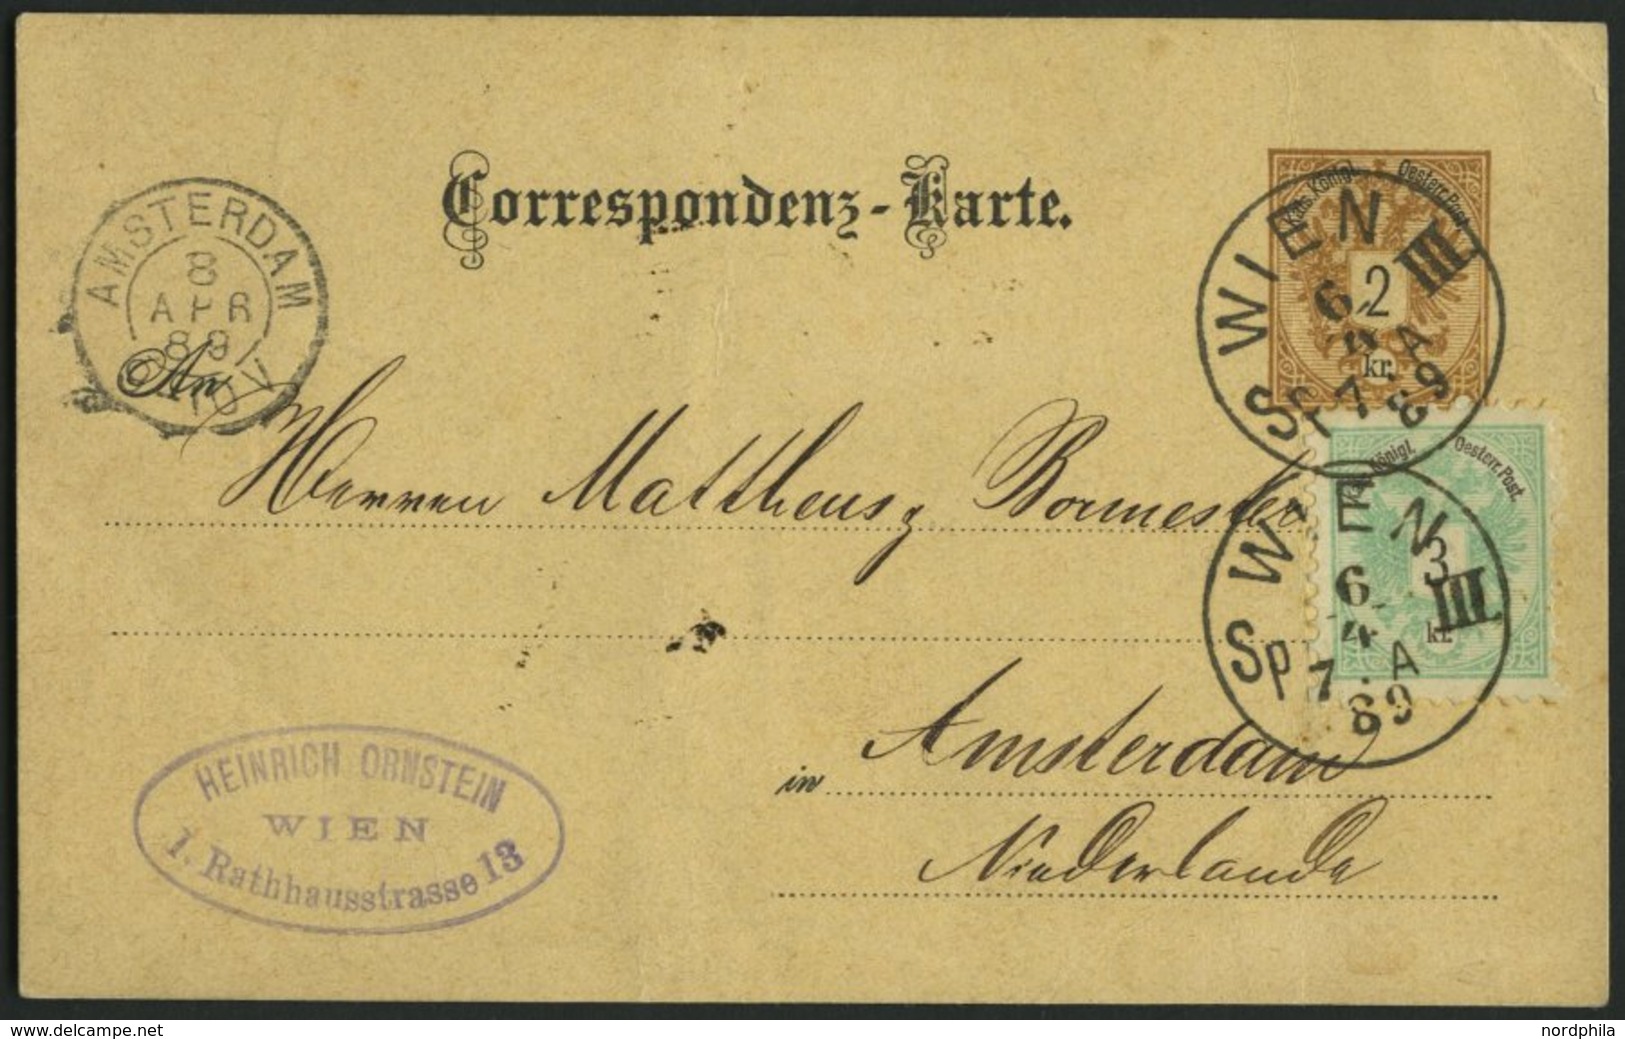 Correspondenz-Karte.
AMSTERDAM
8
APR
89
An
Herren Mattheus Bormester
in Amsterdam
Niederlande
HEINRICH ORNSTEIN
WIEN
1. Rathhausstrasse 13
Kais. Königl. Oesterr. Post
2
kr.
S WIEN III.
6.
4
7. A
89
Königl. Oesterr. Post
3
kr.
S WIEN III.
6.
4
Sp 7. A
89
www.delcampe.net
nordphila